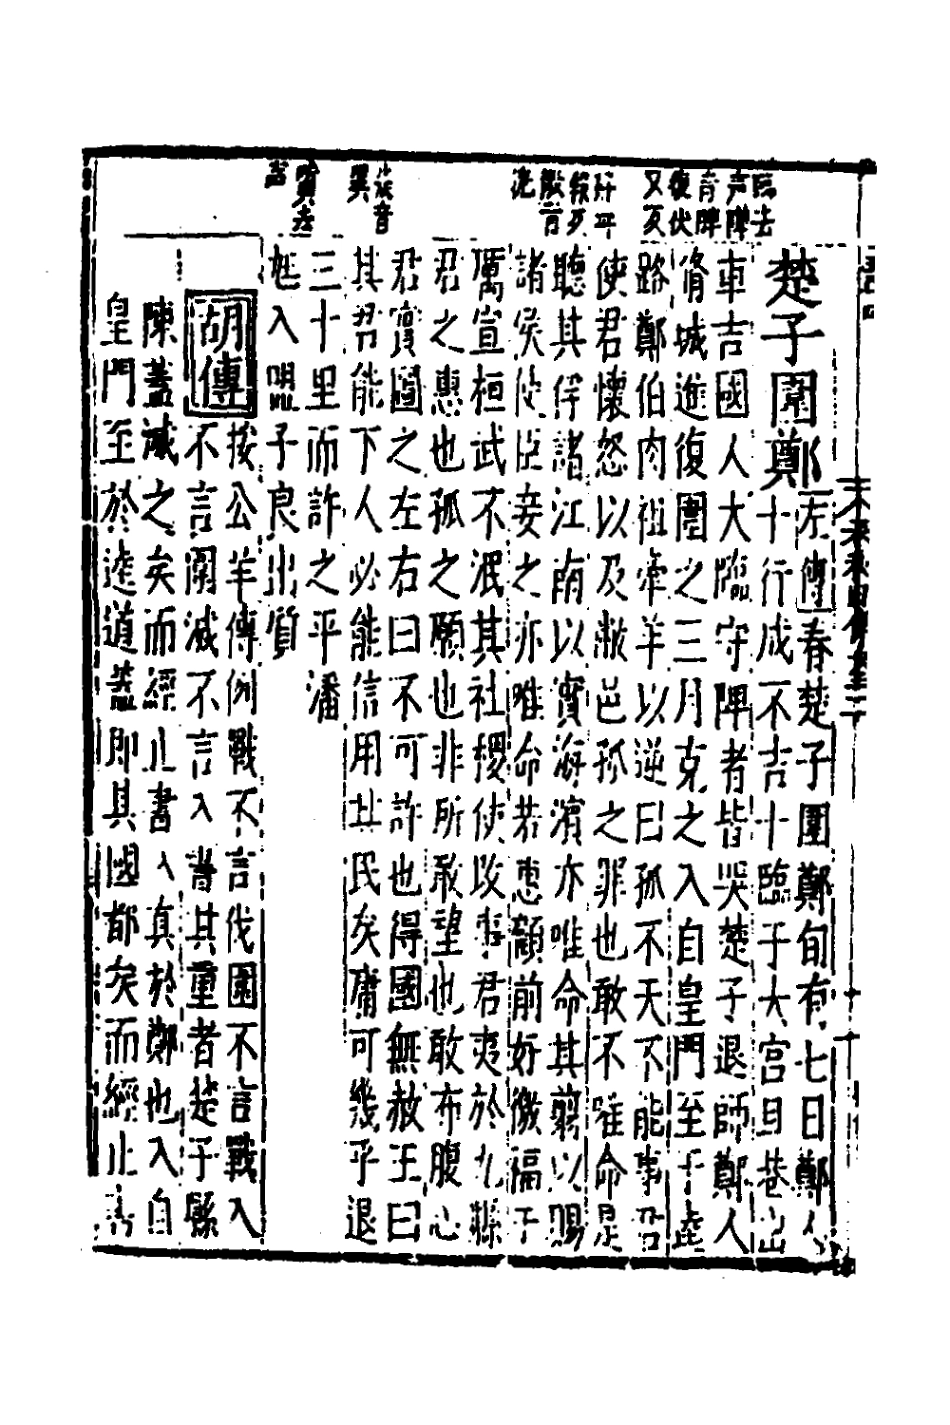 楚子圍鄭左傳春楚子圍鄭旬有七日鄭人
十行成不吉十臨于大宮且巷出
車吉國人大臨守陴者皆哭楚子退師鄭人
脩城進復圍之三月克之入自皇門至于逵
路鄭伯肉袒牽羊以逆曰孤不天不能事君
使君懷怒以及敝邑孤之罪也敢不唯命是
聽其俘諸江南以實海濱亦唯命其翦以賜
諸侯使臣妾之亦唯命若惠顧前好徼福于
厲宣桓武不泯其社稷使攺事君夷於九縣
君之惠也孤之願也非所敢望也敢布腹心
君實圖之左右曰不可許也得國無赦王曰
其君能下人必能信用其民矣庸可幾乎退
三十里而許之平潘
尪入盟子良出質
胡傳按公羊傳例戰不言伐圍不言戰入
不言圍滅不言入書其重者楚子縣
陳蓋滅之矣而經止書入真於鄭也入自
皇門至於逵道蓋即其國都矣而經止書